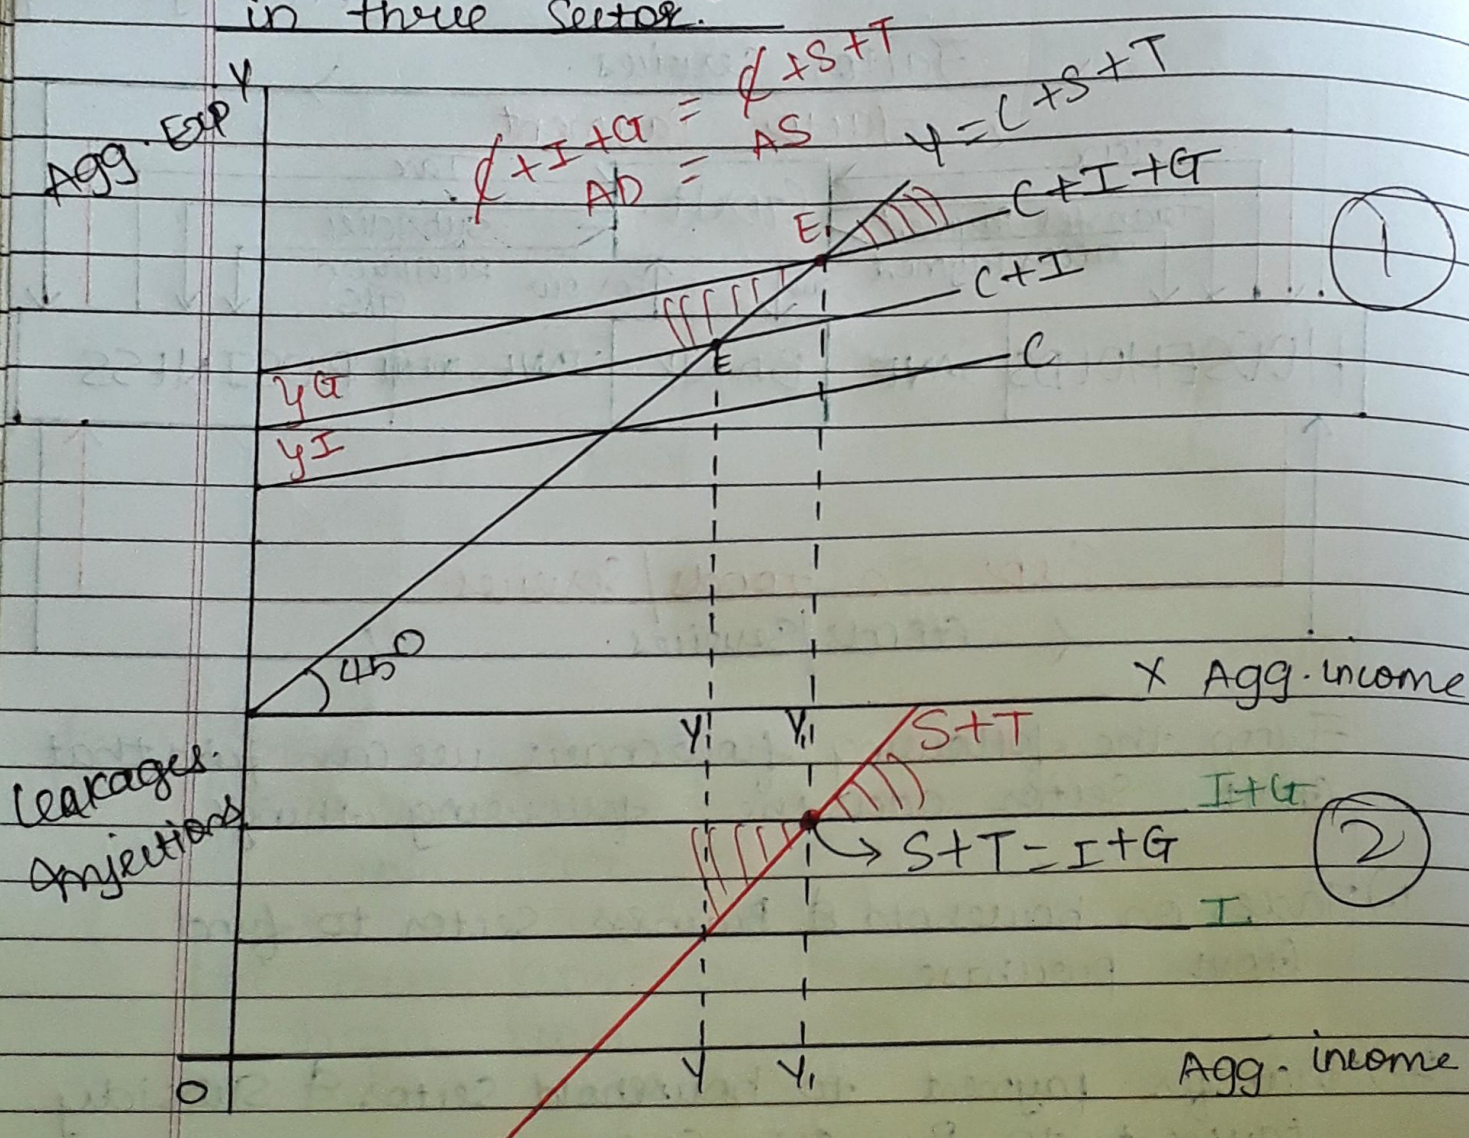 in three Sector.
Y
Agg. Exp
C+I+G = C+S+T
AD = AS
Y=C+S+T
C+I+G
E1
C+I
1
E
C
yG
yI
45°
X Agg. income
Y
Y1
S+T
Leakages.
Injections
I+G
S+T=I+G
2
I
O
Y
Y1
Agg. income